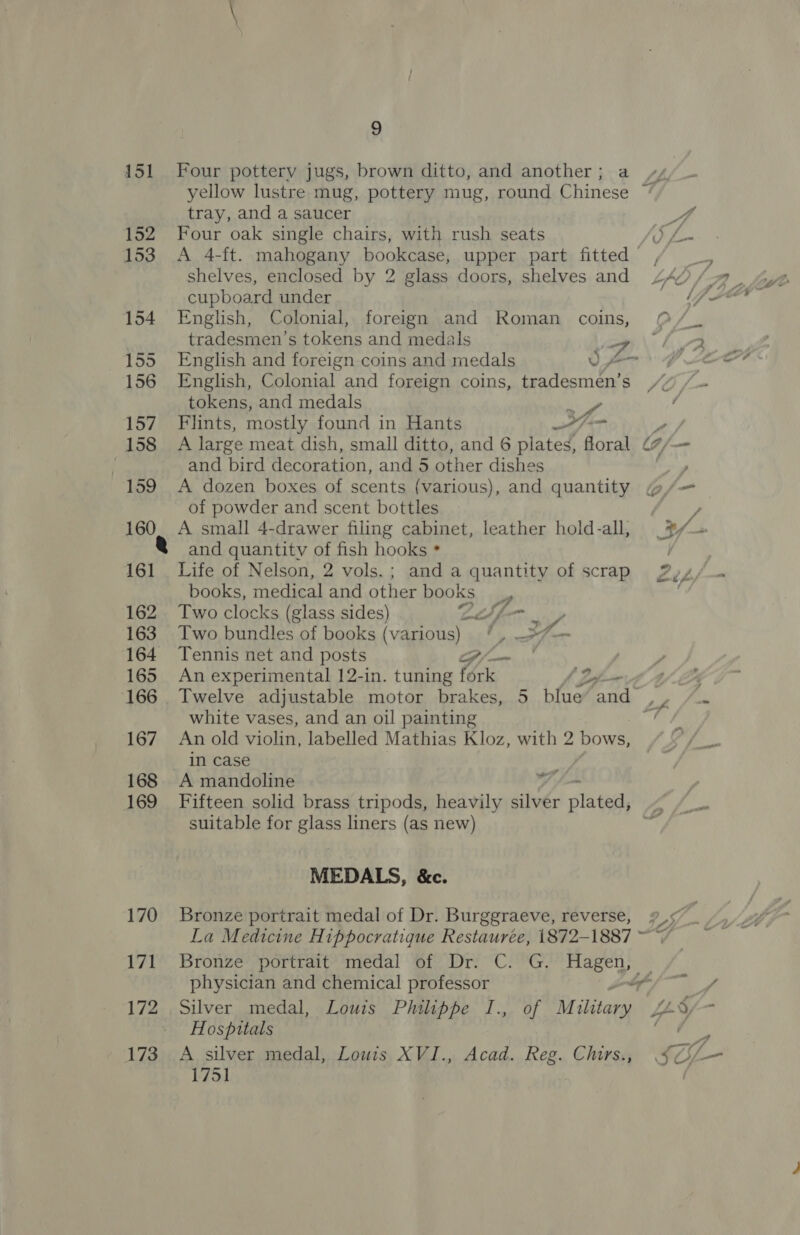 9
151 Four pottery jugs, brown ditto, and another; a
yellow lustre mug, pottery mug, round Chinese
tray, and a saucer
152 Four oak single chairs, with rush seats
153 A 4-ft. mahogany bookcase, upper part fitted
shelves, enclosed by 2 glass doors, shelves and
cupboard under
154 English, Colonial, foreign and Roman coins,
tradesmen's tokens and medals
155 English and foreign coins and medals
156 English, Colonial and foreign coins, tradesmen's
tokens, and medals
157 Flints, mostly found in Hants
158 A large meat dish, small ditto, and 6 plates, floral
and bird decoration, and 5 other dishes
159 A dozen boxes of scents (various), and quantity
of powder and scent bottles
160 A small 4-drawer filing cabinet, leather hold-all,
and quantity of fish hooks
161 Life of Nelson, 2 vols.; and a quantity of scrap
books, medical and other books
162 Two clocks (glass sides)
163 Two bundles of books (various)
164 Tennis net and posts
165 An experimental 12-in. tuning fork
166 Twelve adjustable motor brakes, 5 blue and
white vases, and an oil painting
167 An old violin, labelled Mathias Kloz, with 2 bows,
in case
168 A mandoline
169 Fifteen solid brass tripods, heavily silver plated,
suitable for glass liners (as new)
MEDALS, &c.
170 Bronze portrait medal of Dr. Burggraeve, reverse,
La Medicine Hippocratique Restaurée, 1872–1887
171 Bronze portrait medal of Dr. C. G. Hagen,
physician and chemical professor
172 Silver medal, Louis Philippe I., of Military
Hospitals
173 A silver medal, Louis XVI., Acad. Reg. Chirs.,
1751